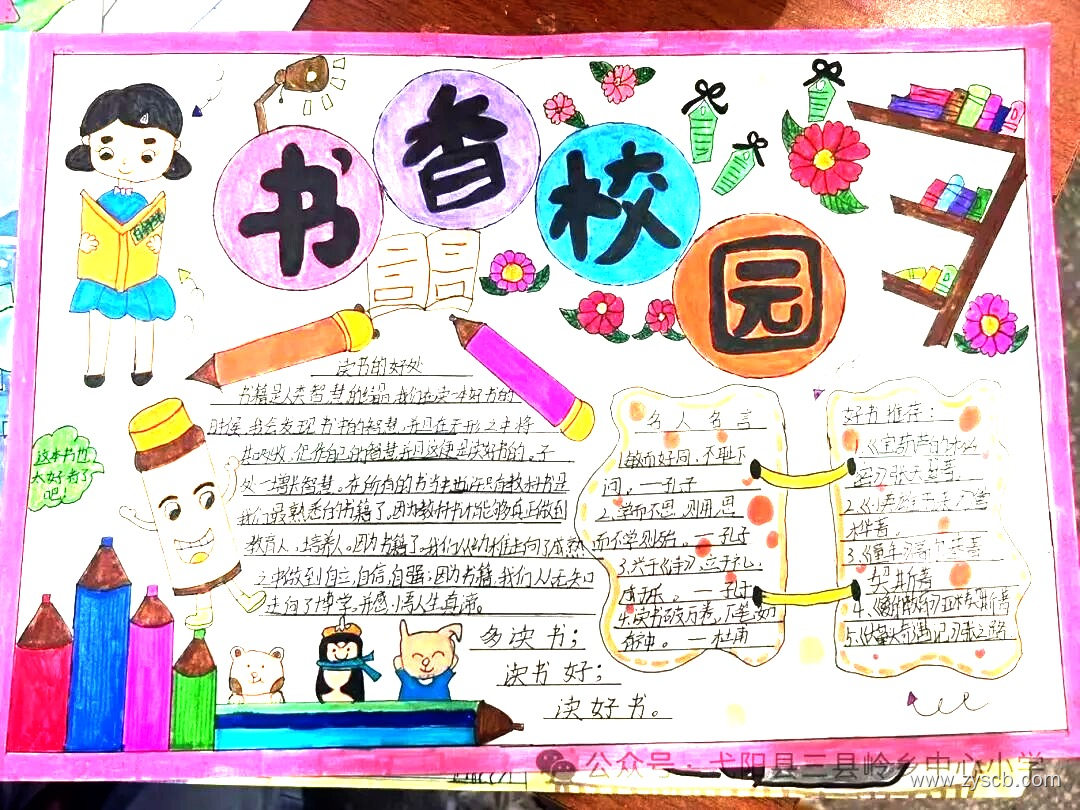 书香校园
读书的好处
书籍是人类智慧的结晶,我们在读一本好书的
时候,我会发现书中的智慧,并且在无形之中将
其吸收,化作自己的智慧,并且这便是读好书的。子
处一增长智慧。在所有的书当中也许只有教科书是
我们最熟悉的书籍了。因为教材书才能够真正做到
教育人、培养人。因为书籍了,我们从幼稚走向了成熟
之书做到自立,自信,自强;因为书籍,我们从无知
走向了博学,并感悟人生真谛。
多读书;
读书好;
读好书。
这本书也
太好看了
吧!
名人名言
1.敏而好问,不耻下
问。一孔子
2.学而不思,则罔,思
而不学则殆。一孔子
3.兴于《诗》,立于礼,
成于乐。一孔子
4.读书破万卷,下笔如
有神。一杜甫
好书推荐:
1.《宝葫芦的秘
密》张天翼著。
2.
林著。
3.《童年》高尔基著
4.
5.
公众号·弋阳县三县岭乡中心小学
www.zyscb.com